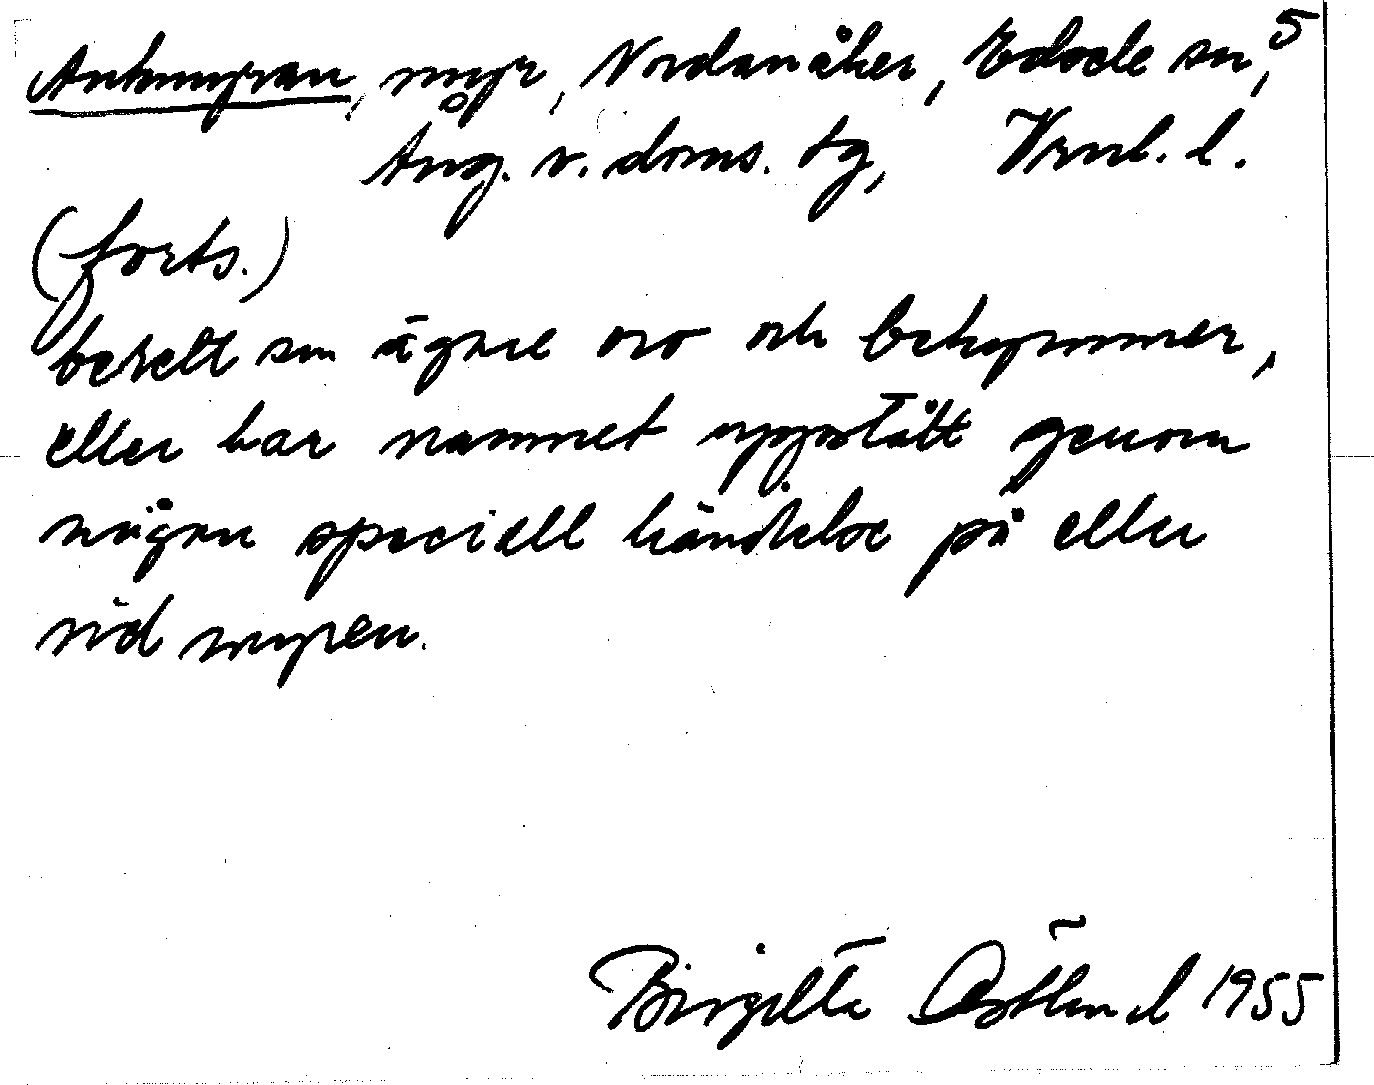 Ankmyran, myr, Nordanåker, Edsele sn, 5
Ång. v. doms. tg, Vrnl. l.
(forts.)
berett sin ägare oro och bekymmer,
eller har namnet uppstått genom
någon speciell händelse på eller
vid myren.
Birgitta Östlund 1955